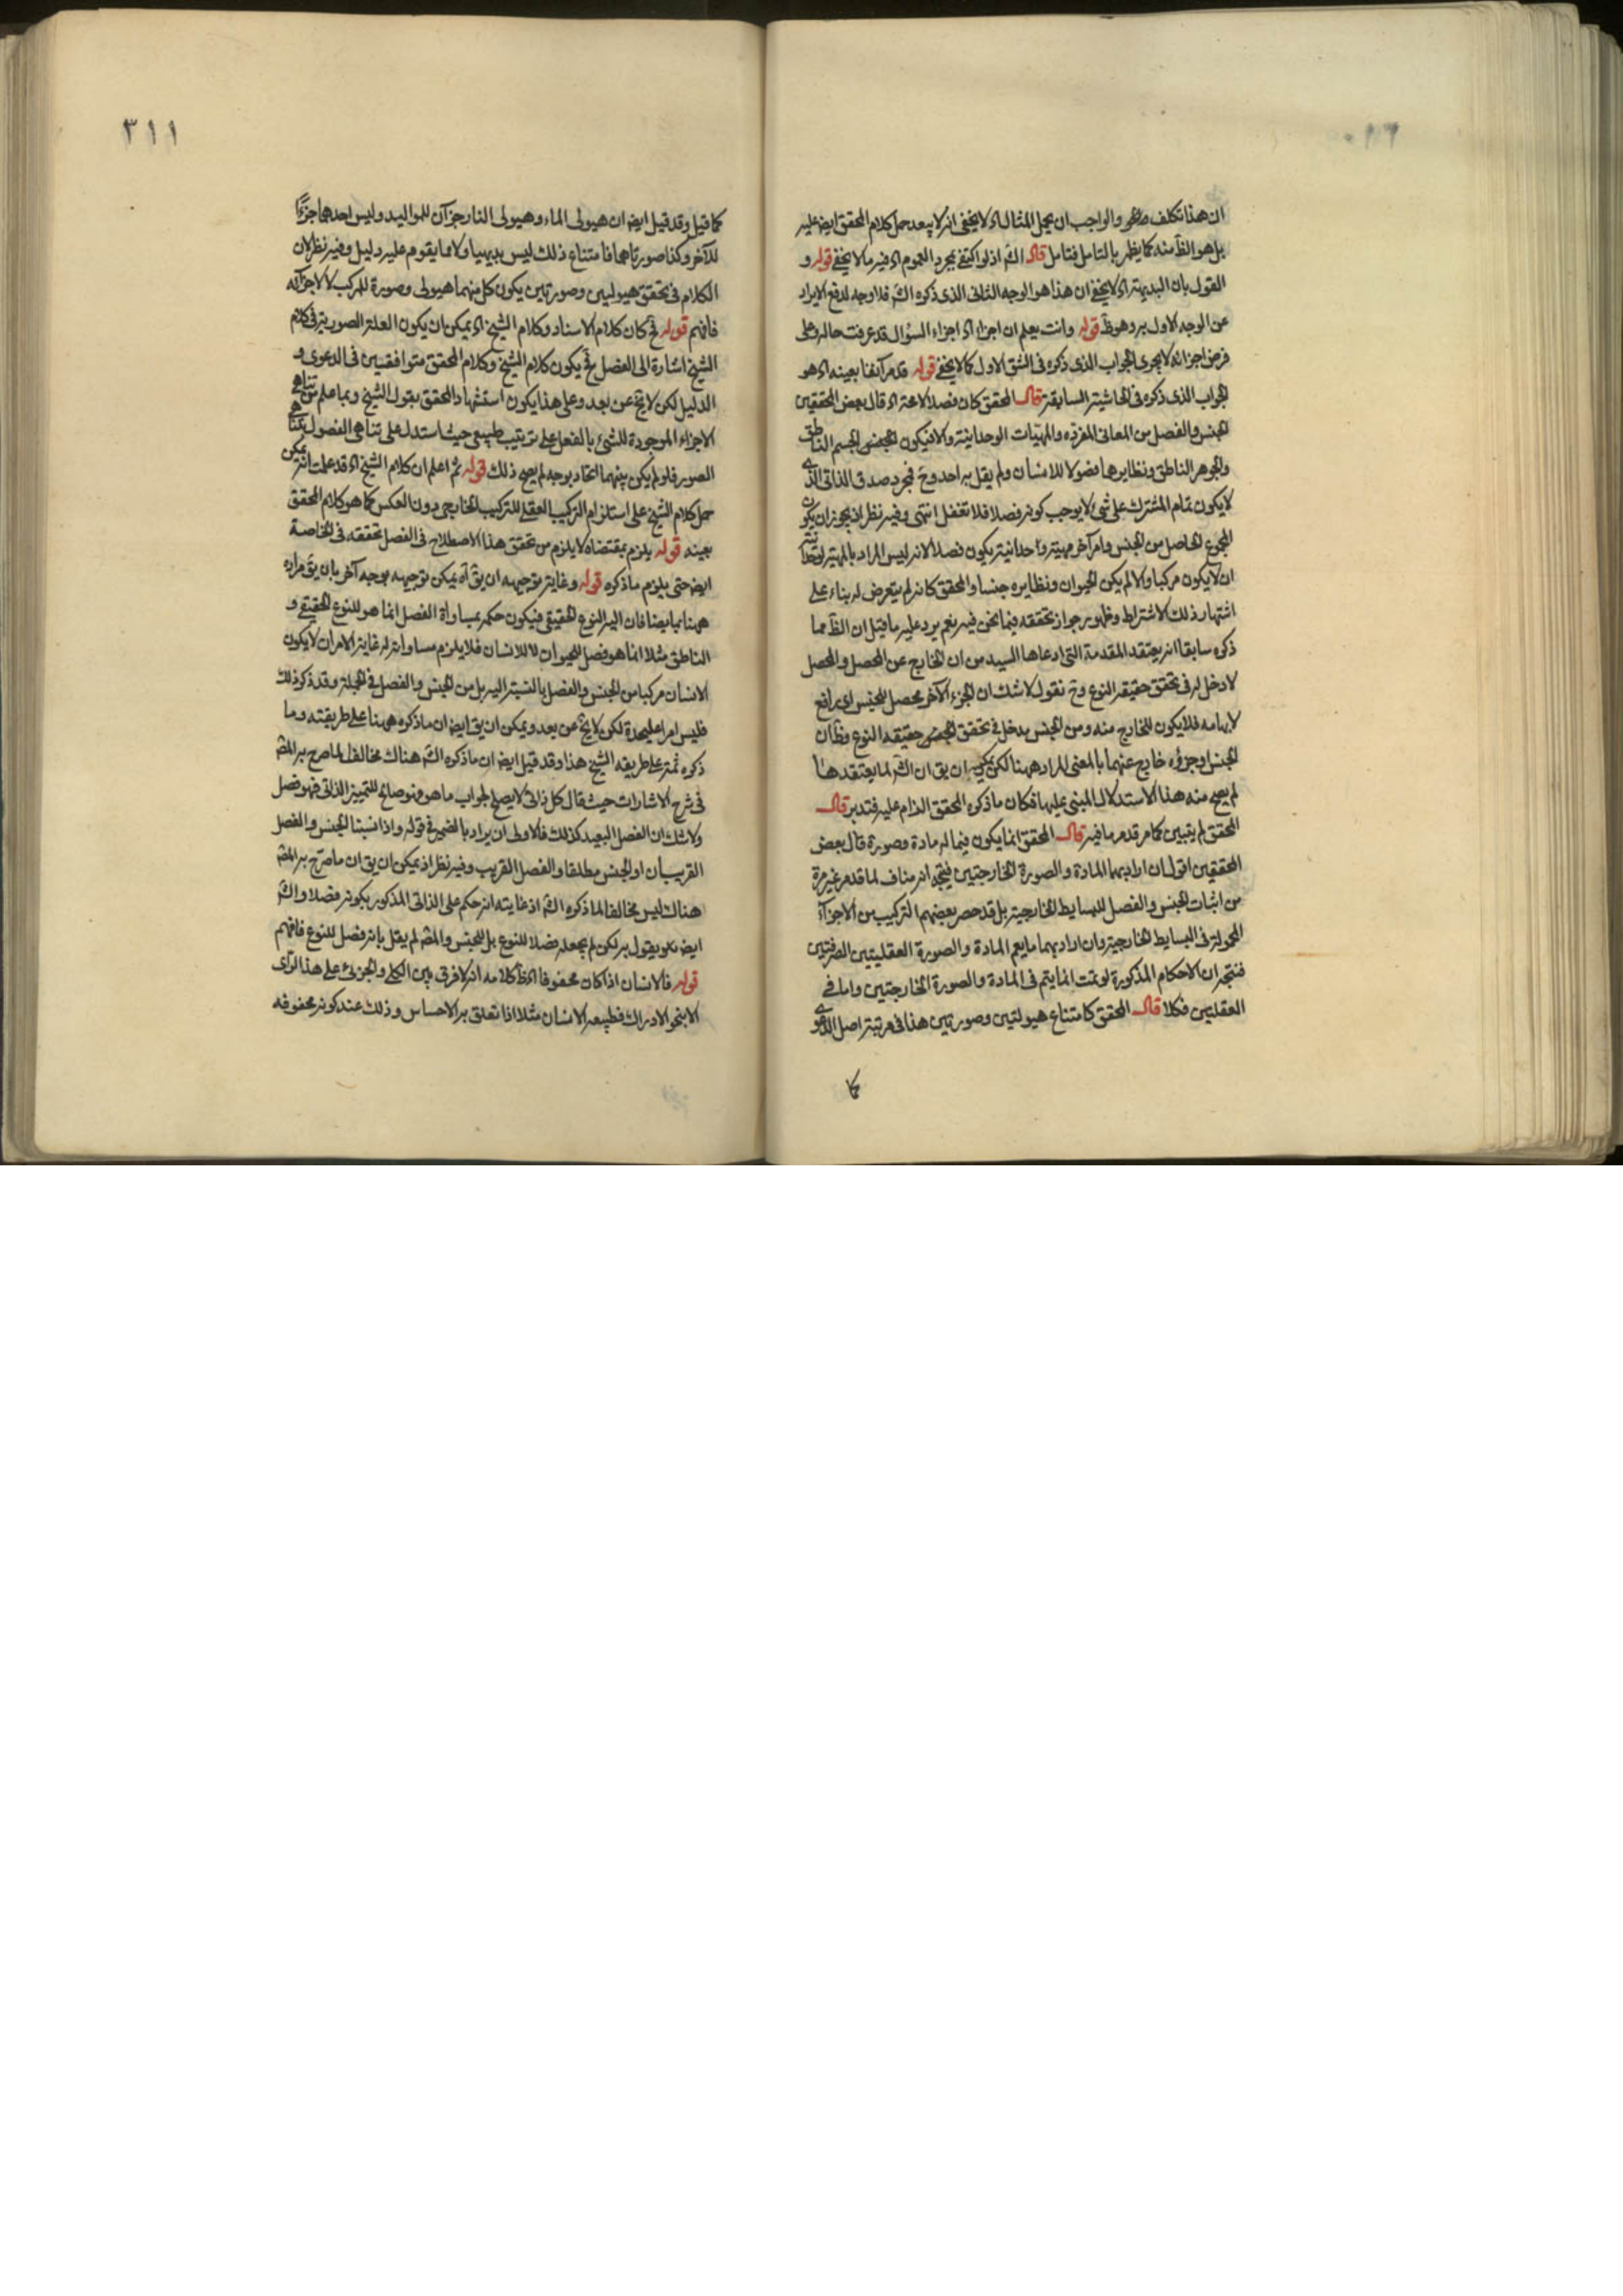 ان هذا تكلف والواجب ان يحمل المثال اه لا يخفى انه لا يبعد حمل كلام المحقق ايضا عليه
بل هو الظ منه كما يظهر بالتامل فتامل قال الش اذ لو اكتفى بمجرد العموم اه فيه ما لا يخفى قوله و
القول بان البديهة اه لا يخفى ان هذا هو الوجه الثانى الذى ذكره الش فلا وجه لدفع الايراد
عن الوجه الاول به وهو ظ قوله وانت تعلم ان اجزاء اه اجزاء السؤال قد عرفت حاله وعلى
فرض اجرائه لا يجرى الجواب الذى ذكره فى الشق الاول كما لا يخفى قوله قد مر آنفا بعينه اه هو
الجواب الذى ذكره فى الحاشية السابقة قال المحقق كان فصلا لاعتراء قال بعض المحققين
الجنس والفصل من المعانى المفردة والمهيات الوحدانية والا فيكون الجسم الناطق
والجوهر الناطق ونظايرها فصولا للانسان ولم يقل به احد وح فمجرد صدق الذاتى الذى
لا يكون تمام المشترك على شى لا يوجب كونه فصلا فلا تغفل انتهى وفيه نظر اذ يجوز ان يكون
المجموع الحاصل من الجنس وامر آخر مهية وحدانية يكون فصلا لانه ليس المراد بالمهية الوحدانية
ان لا يكون مركبا والا لم يكن الحيوان ونظايره جنسا والمحقق كانه لم يتعرض له بناء على
اشتهار ذلك الاشتراط وظهور جواز تحققه فيما نحن فيه نعم يرد عليه ما قيل ان الظ مما
ذكره سابقا انه يعتقد المقدمة التى ادعاها السيد من ان الخارج عن المحصل والمحصل
لا دخل له فى تحقق حقيقة النوع وح نقول لا شك ان الجزء الآخر محصل للجنس اى رافع
لابهامه فلا يكون للخارج منه ومن الجنس مدخل فى تحقق حقيقة النوع وظ ان
الجنس وجزؤه خارج عنهما بالمعنى المراد ههنا لكن يمكن ان يق ان الش لما يعتقدها
لم يصح منه هذا الاستدلال المبنى عليها فكان ما ذكره المحقق الزام عليه فتدبر قال
المحقق لم يتبين كما مر قد مر ما فيه قال المحقق انما يكون فيما له مادة وصورة قال بعض
المحققين اقول ان اراد بهما المادة والصورة الخارجتين فيتجه انه مناف لما قد مر غير مرة
من اثبات الجنس والفصل للبسايط الخارجية بل قد حصر بعضهم التركيب من الاجزاء
المحمولة فى البسايط الخارجية وان اراد بهما ما يعم المادة والصورة العقليتين الصرفتين
فنتجه ان الاحكام المذكورة لو تمت انما يتم فى المادة والصورة الخارجتين واما فى
العقليتين فكلا قال المحقق كامتناع هيولتين وصورتين هذا فى مرتبة اصل الدعوى
كما
٣١١
كما قيل وقد قيل ايضا ان هيولى الماء وهيولى النار جزآن للمواليد وليس احدهما جزءا
للآخر وكذا صورتاهما فامتناع ذلك ليس بديهيا ولا مما يقوم عليه دليل وفيه نظر لان
الكلام فى تحقق هيوليين وصورتين يكون كل منهما هيولى وصورة للمركب لا لاجزائه
فافهم قوله فح كان كلام الاسناد وكلام الشيخ اه يمكن ان يكون العلة الصورية فى كلام
الشيخ اشارة الى الفصل فح يكون كلام الشيخ وكلام المحقق متوافقين فى الدعوى و
الدليل لكن لا يخ عن بعد وعلى هذا يكون استشهاد المحقق بقول الشيخ وبما علم من تناهى
الاجزاء الموجودة للشئ بالفعل على ترتيب طبيعى حيث استدل على تناهى الفصول بتناهى
الصور فلو لم يكن بينهما اتحاد بوجه لم يصح ذلك قوله ثم اعلم ان كلام الشيخ اه قد علمت انه يمكن
حمل كلام الشيخ على استلزام التركيب العقلى للتركيب الخارجى دون العكس كما هو كلام المحقق
بعينه قوله يلزم بمقتضاه لا يلزم من تحقق هذا الاصطلاح فى الفصل تحققه فى الخاصة
ايضا حتى يلزم ما ذكره قوله وغاية توجيهه ان يق اه يمكن توجيهه بوجه آخر بان يق مراده
ههنا ايضا فان اليه النوع الحقيقى فيكون حكمه بمساواة الفصل انما هو للنوع الحقيقى و
الناطق مثلا انما هو فصل للحيوان لا للانسان فلا يلزم مساواته له غاية الامر ان لا يكون
الانسان مركبا من الجنس والفصل بالنسبة اليه بل من الجنس والفصل فى الجملة وقد ذكر ذلك
فليس امرا عليحدة لكن لا يخ عن بعد ويمكن ان يق ايضا ان ما ذكره ههنا على طريقته وما
ذكره ثمة على طريقه الشيخ هذا وقد قيل ايضا ان ما ذكره الش هناك مخالف لما صرح به المص
فى شرح الاشارات حيث قال كل ذاتى لا يصلح لجواب ما هو فهو صالح للتمييز الذاتى فهو فصل
ولا شك ان الفصل البعيد كذلك فالاولى ان يراد بالضمير فى قوله واذا نسبتا الجنس والفصل
القريبان او الجنس مطلقا والفصل القريب وفيه نظر اذ يمكن ان يق ان ما صرح به المص
هناك ليس مخالفا لما ذكره الش اذ غايته انه حكم على الذاتى المذكور بكونه فصلا والش
ايضا يقول به لكن لم يجعله فصلا للنوع بل للجنس والمص لم يقل بانه فصل للنوع فافهم
قوله فالانسان اذا كان محفوفا اه ظ كلامه انه لا فرق بين الكلى والجزئى على هذا الراى
الا بنحو الادراك فطبيعه الانسان مثلا اذا تعلق به الاحساس وذلك عند كونه محفوفه